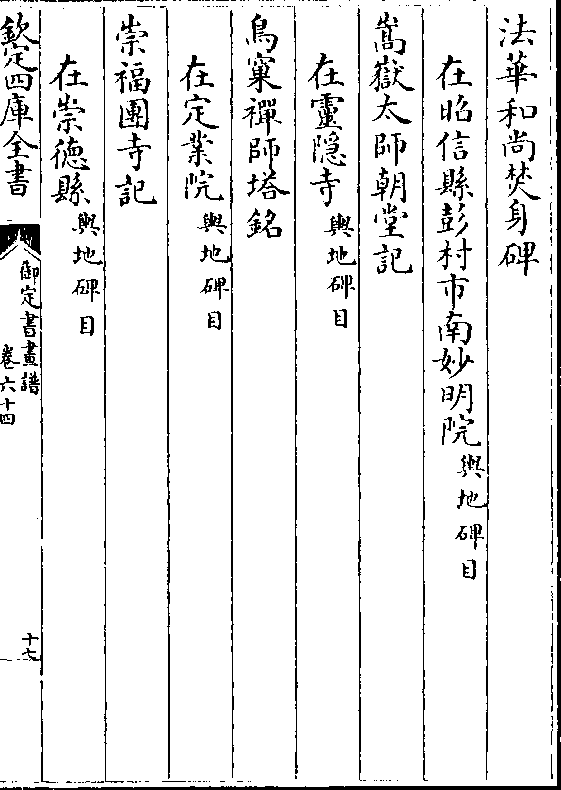 法華和尚焚身碑
在昭信縣彭村市南妙明院輿地碑目
嵩嶽太師朝堂記
在靈隠寺輿地碑目
鳥窠禪師塔銘
在定業院輿地碑目
崇福團寺記
在崇德縣輿地碑目
欽定四庫全書
御定書畫譜
卷六十四
十七